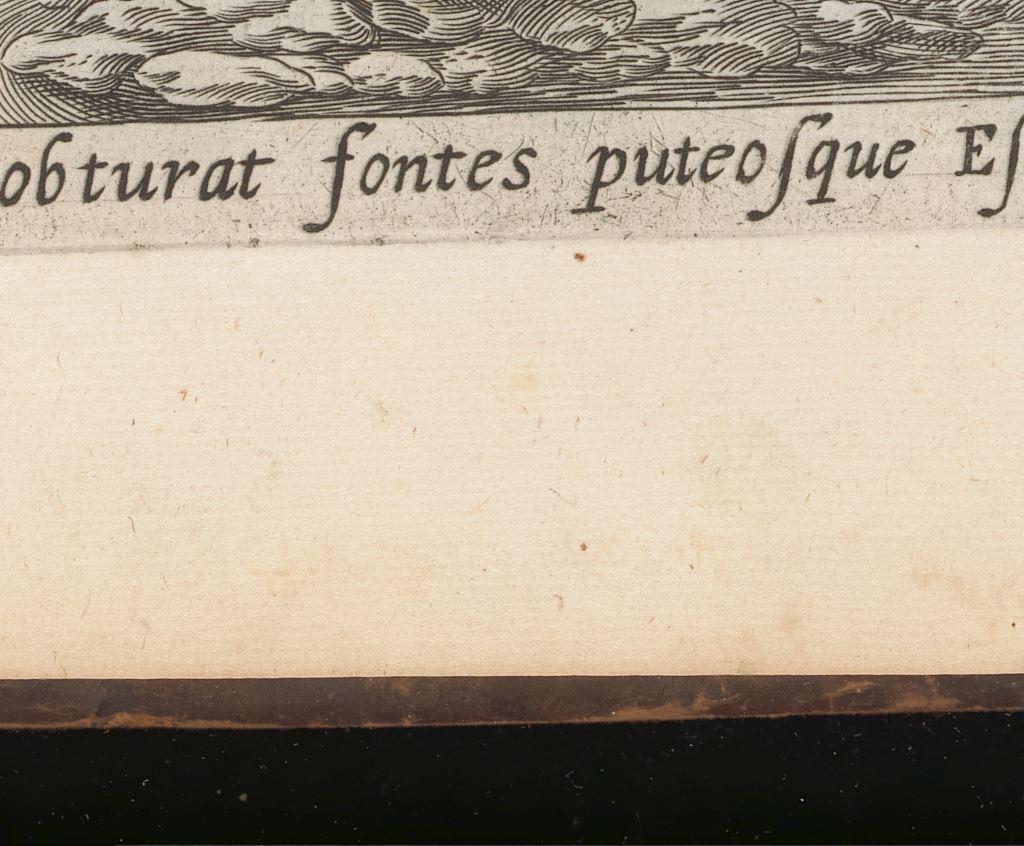 obturat fontes puteoſque Eſ